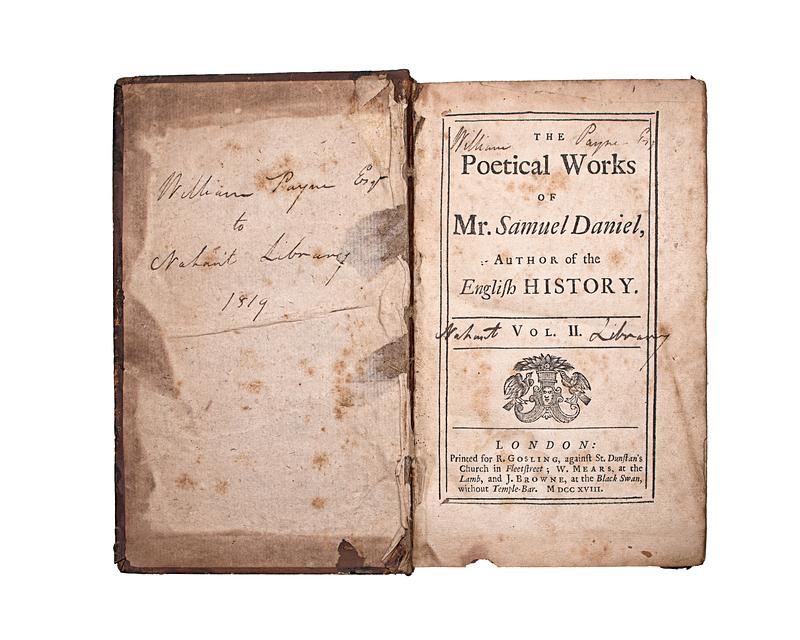 William Payne Esqr
to
Nahant Library
1819
William Payne Esq
THE
Poetical Works
OF
Mr. Samuel Daniel,
AUTHOR of the
Engliſh HISTORY.
Nahant VOL. II. Library
LONDON:
Printed for R. GOSLING, againſt St. Dunſtan's
Church in Fleetſtreet; W. MEARS, at the
Lamb, and J. BROWNE, at the Black Swan,
without Temple-Bar. MDCCXVIII.